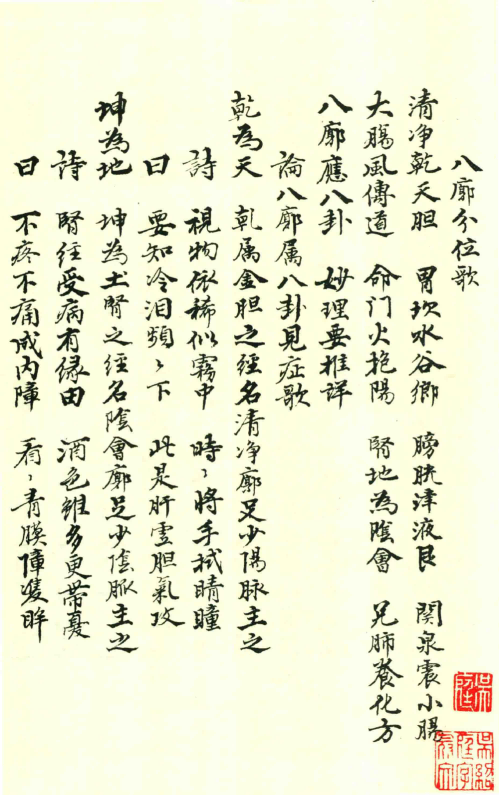 八廓分位歌
清净乾天胆 胃坎水谷鄉 膀胱津液艮 関泉震小腸
大腸風傳道 命门火抱陽 腎地為陰會 兑肺養化方
八廓應八卦 妙理要推詳
論八廓属八卦見症歌
乾為天 乾属金胆之經名清净廓足少陽脉主之
詩 視物依稀似霧中 時〻將手拭睛瞳
曰 要知冷泪頻〻下 此是肝虚胆氣攻
坤為地 坤為土腎之經名陰會廓足少陰脈主之
詩 腎经受病有縁由 酒色雖多更帶憂
曰 不疼不痛成内障 看〻青膜障雙眸